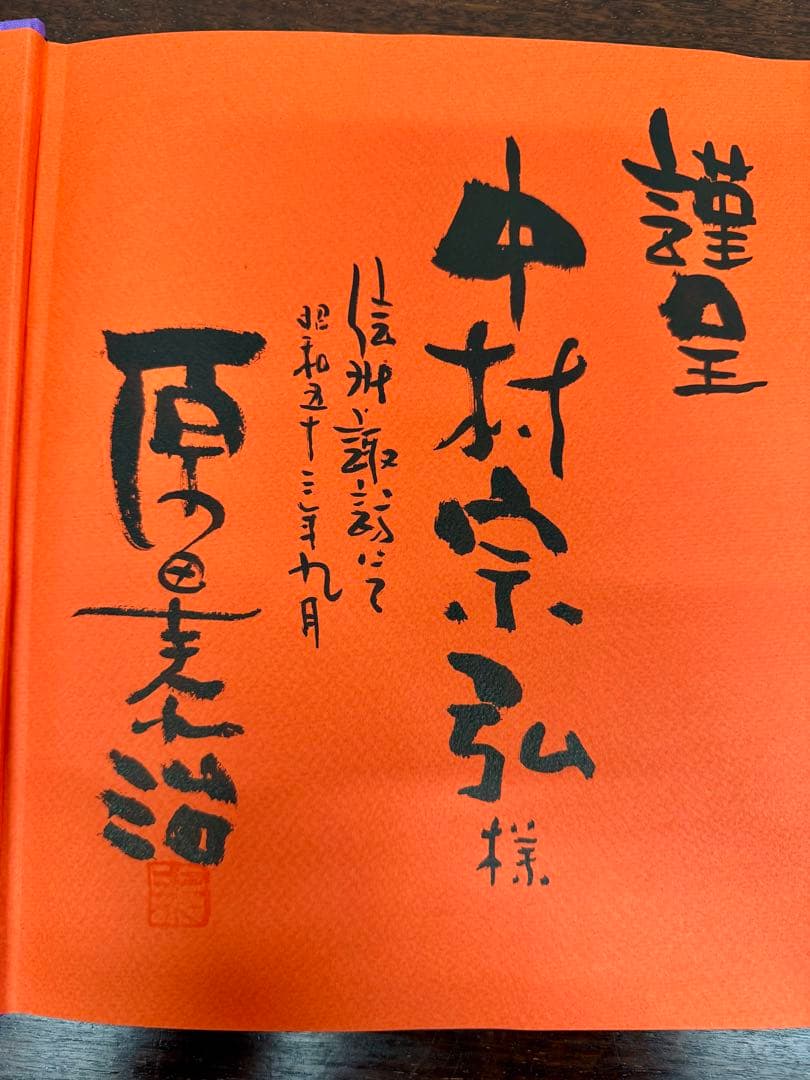 謹呈
中村宗弘様
信州諏訪にて
昭和五十三年九月
原田泰治